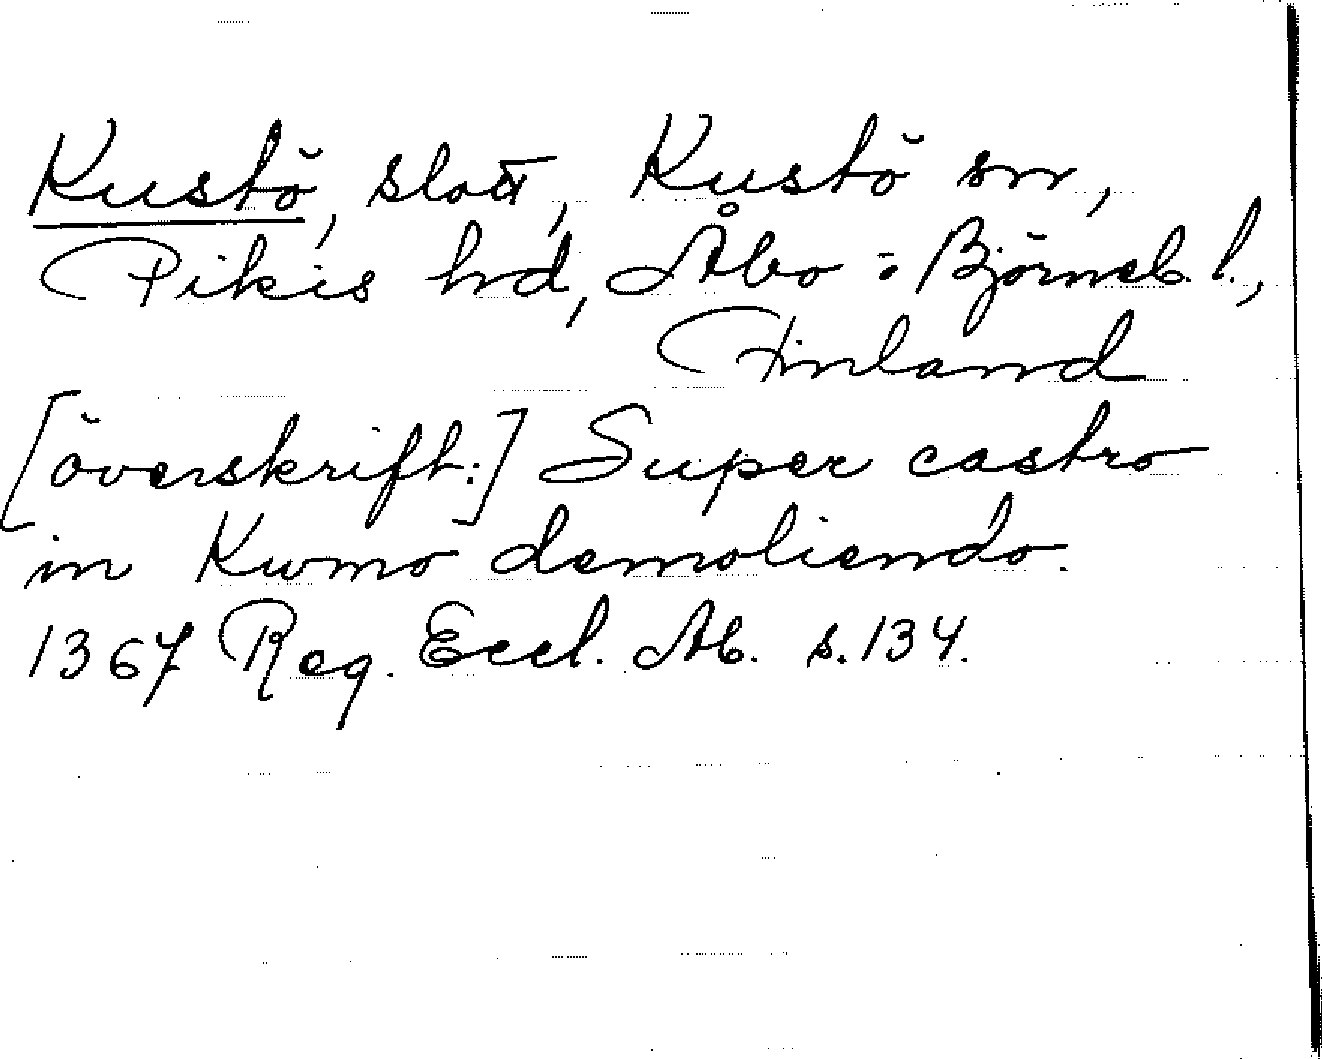 Kustö, slott, Kustö sn,
Pikis hd, Åbo = Björneb. l.,
Finland
[överskrift:] Super castro
in Kwmo demoliendo.
1367 Reg. Eccl. Ab. s. 134.